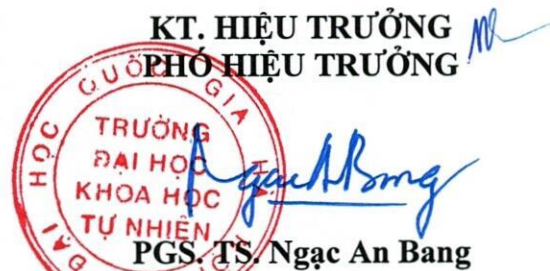 KT. HIỆU TRƯỞNG
PHÓ HIỆU TRƯỞNG
ĐẠI HỌC QUỐC GIA HÀ
TRƯỜNG
ĐẠI HỌC
KHOA HỌC
TỰ NHIÊN
NgạcABang
PGS. TS. Ngạc An Bang